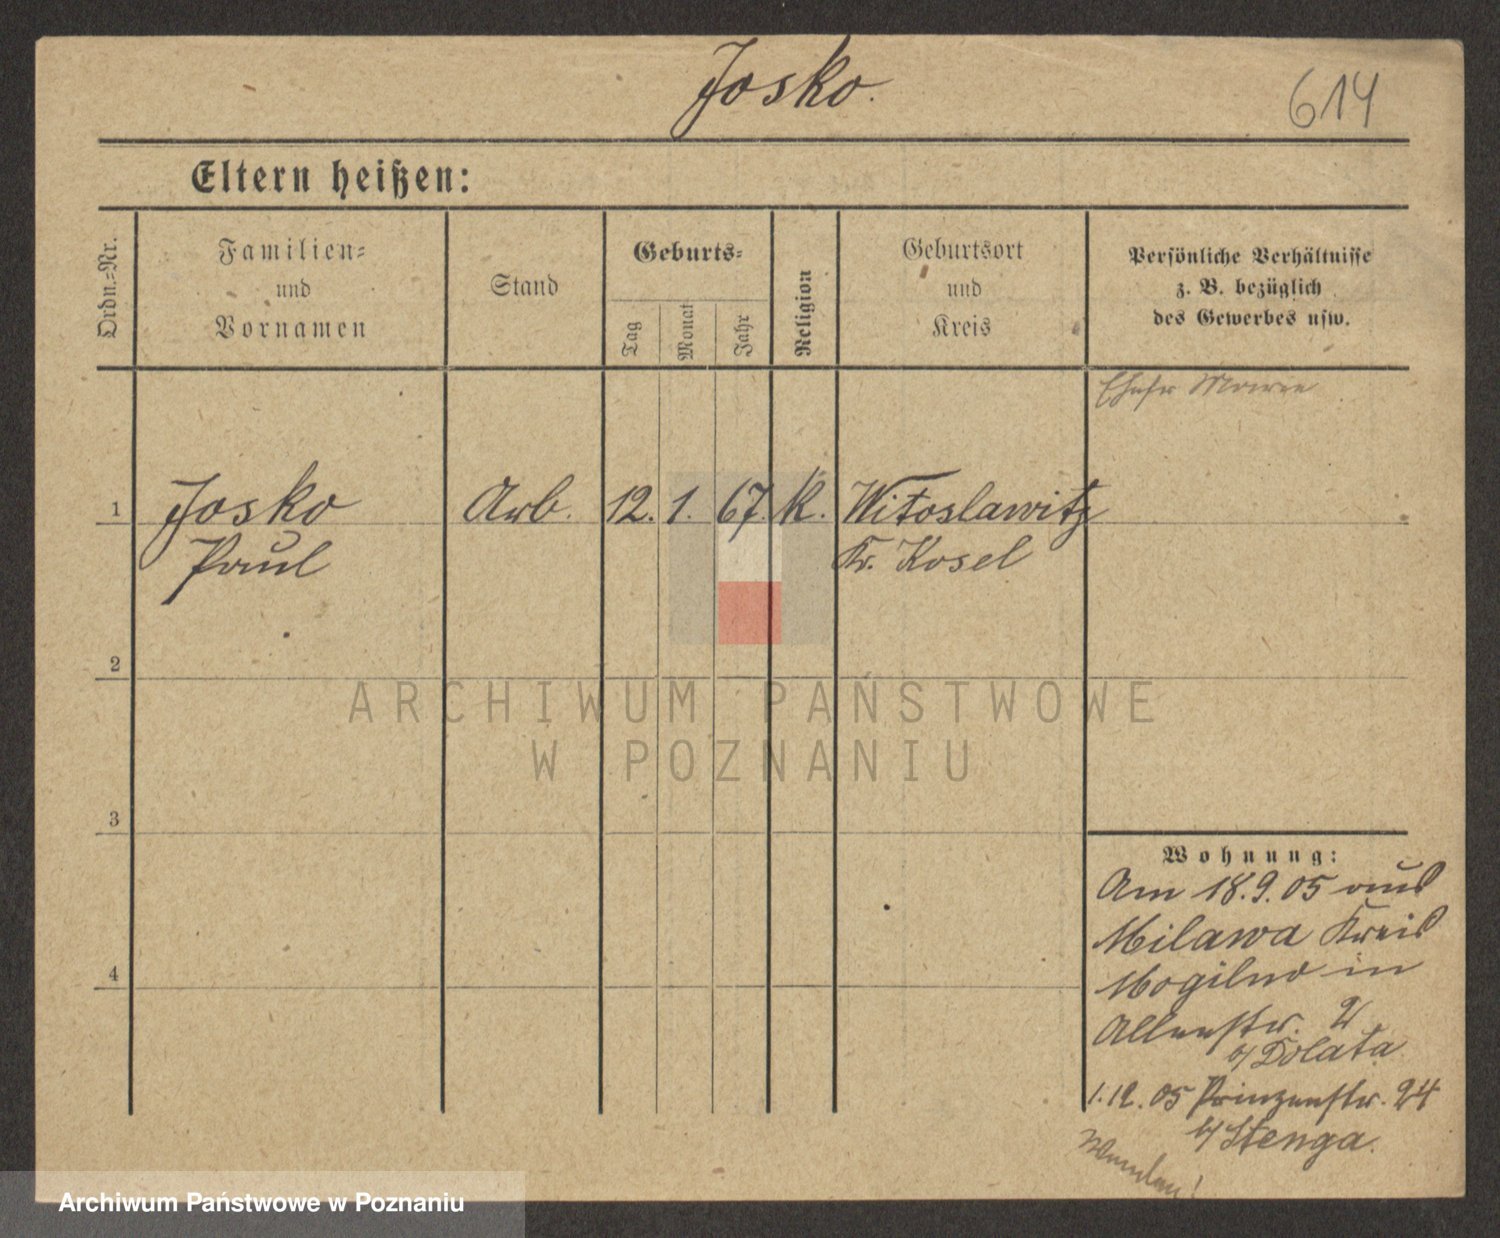 Josko.
614
Eltern heißen:
Ordn.-Nr.
Familien-
und
Vornamen
Stand
Geburts-
Tag
Monat
Jahr
Religion
Geburtsort
und
Kreis
Persönliche Verhältnisse
z. B. bezüglich
des Gewerbes usw.
Marie
1
Josko
Paul
Arb.
12.
1.
67.
K.
Witoslawitz
Kr. Kosel
2
3
4
Wohnung:
Am 18.9.05 aus
Milawa Kreis
Mogilno in
Allerstr. 2
b/ Dolata
1.12.05 Prinzenstr. 24
b/ Stenga.
ARCHIWUM PAŃSTWOWE
W POZNANIU
Archiwum Państwowe w Poznaniu